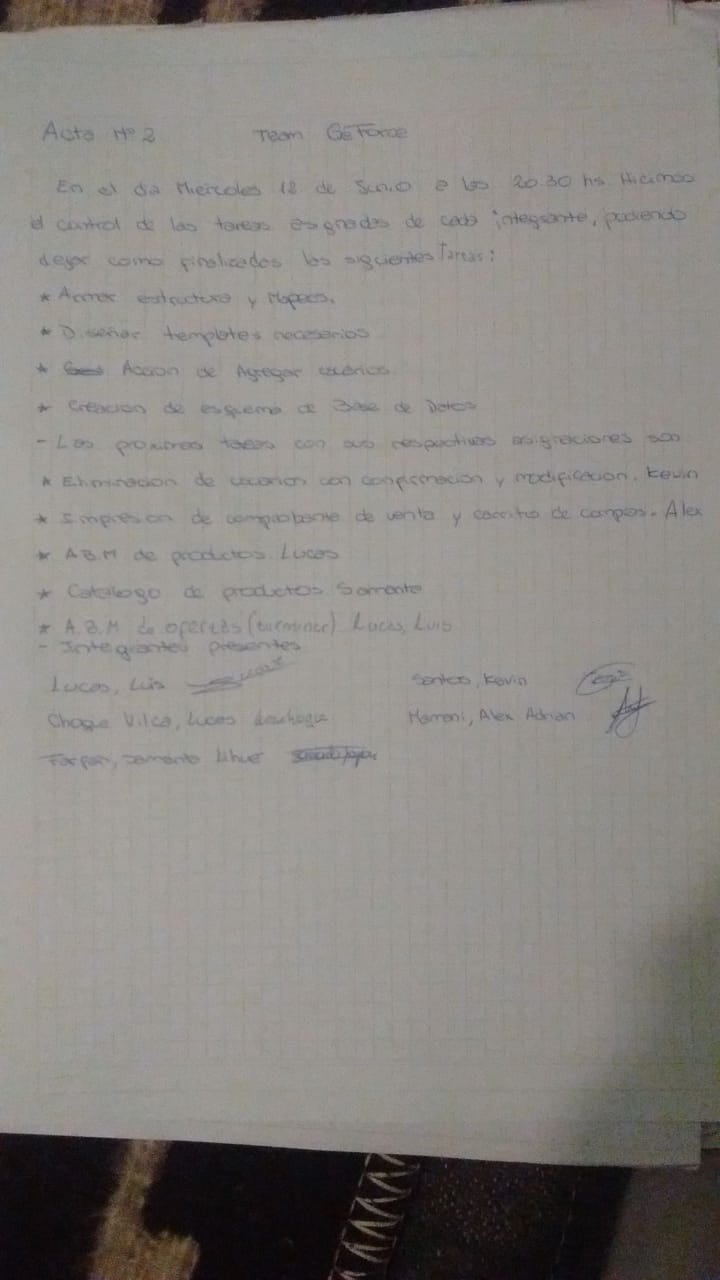 Acta Nº 2 Team GeForce
En el dia Miercoles 12 de Junio a las 20.30 hs Hicimos
el control de las tareas asignadas de cada integrante, pudiendo
dejar como finalizadas las siguientes Tareas:
* Armar estructura y Mapeos.
* Diseñar templates necesarios
* Accion de Agregar usuarios
* Creacion de esquema de Base de Datos
- Las proximas tareas con sus respectivas asignaciones son
* Eliminacion de usuarios con confirmacion y modificacion. Kevin
* Impresion de comprobante de venta y carrito de compras. Alex
* ABM de productos Lucas
* Catalogo de productos Samanta
* A.B.M de ofertas (terminar) Lucas, Luis
- Integrantes presentes
Lucas, Luis Santos, Kevin
Choque Vilca, Lucas Mamani, Alex Adrian
Farfan, Samanta